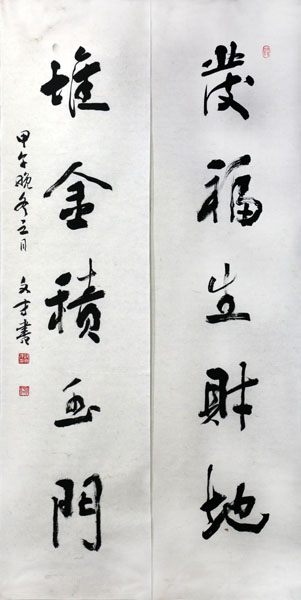 發福生財地
堆金積玉門
甲午晚冬之月 文 書